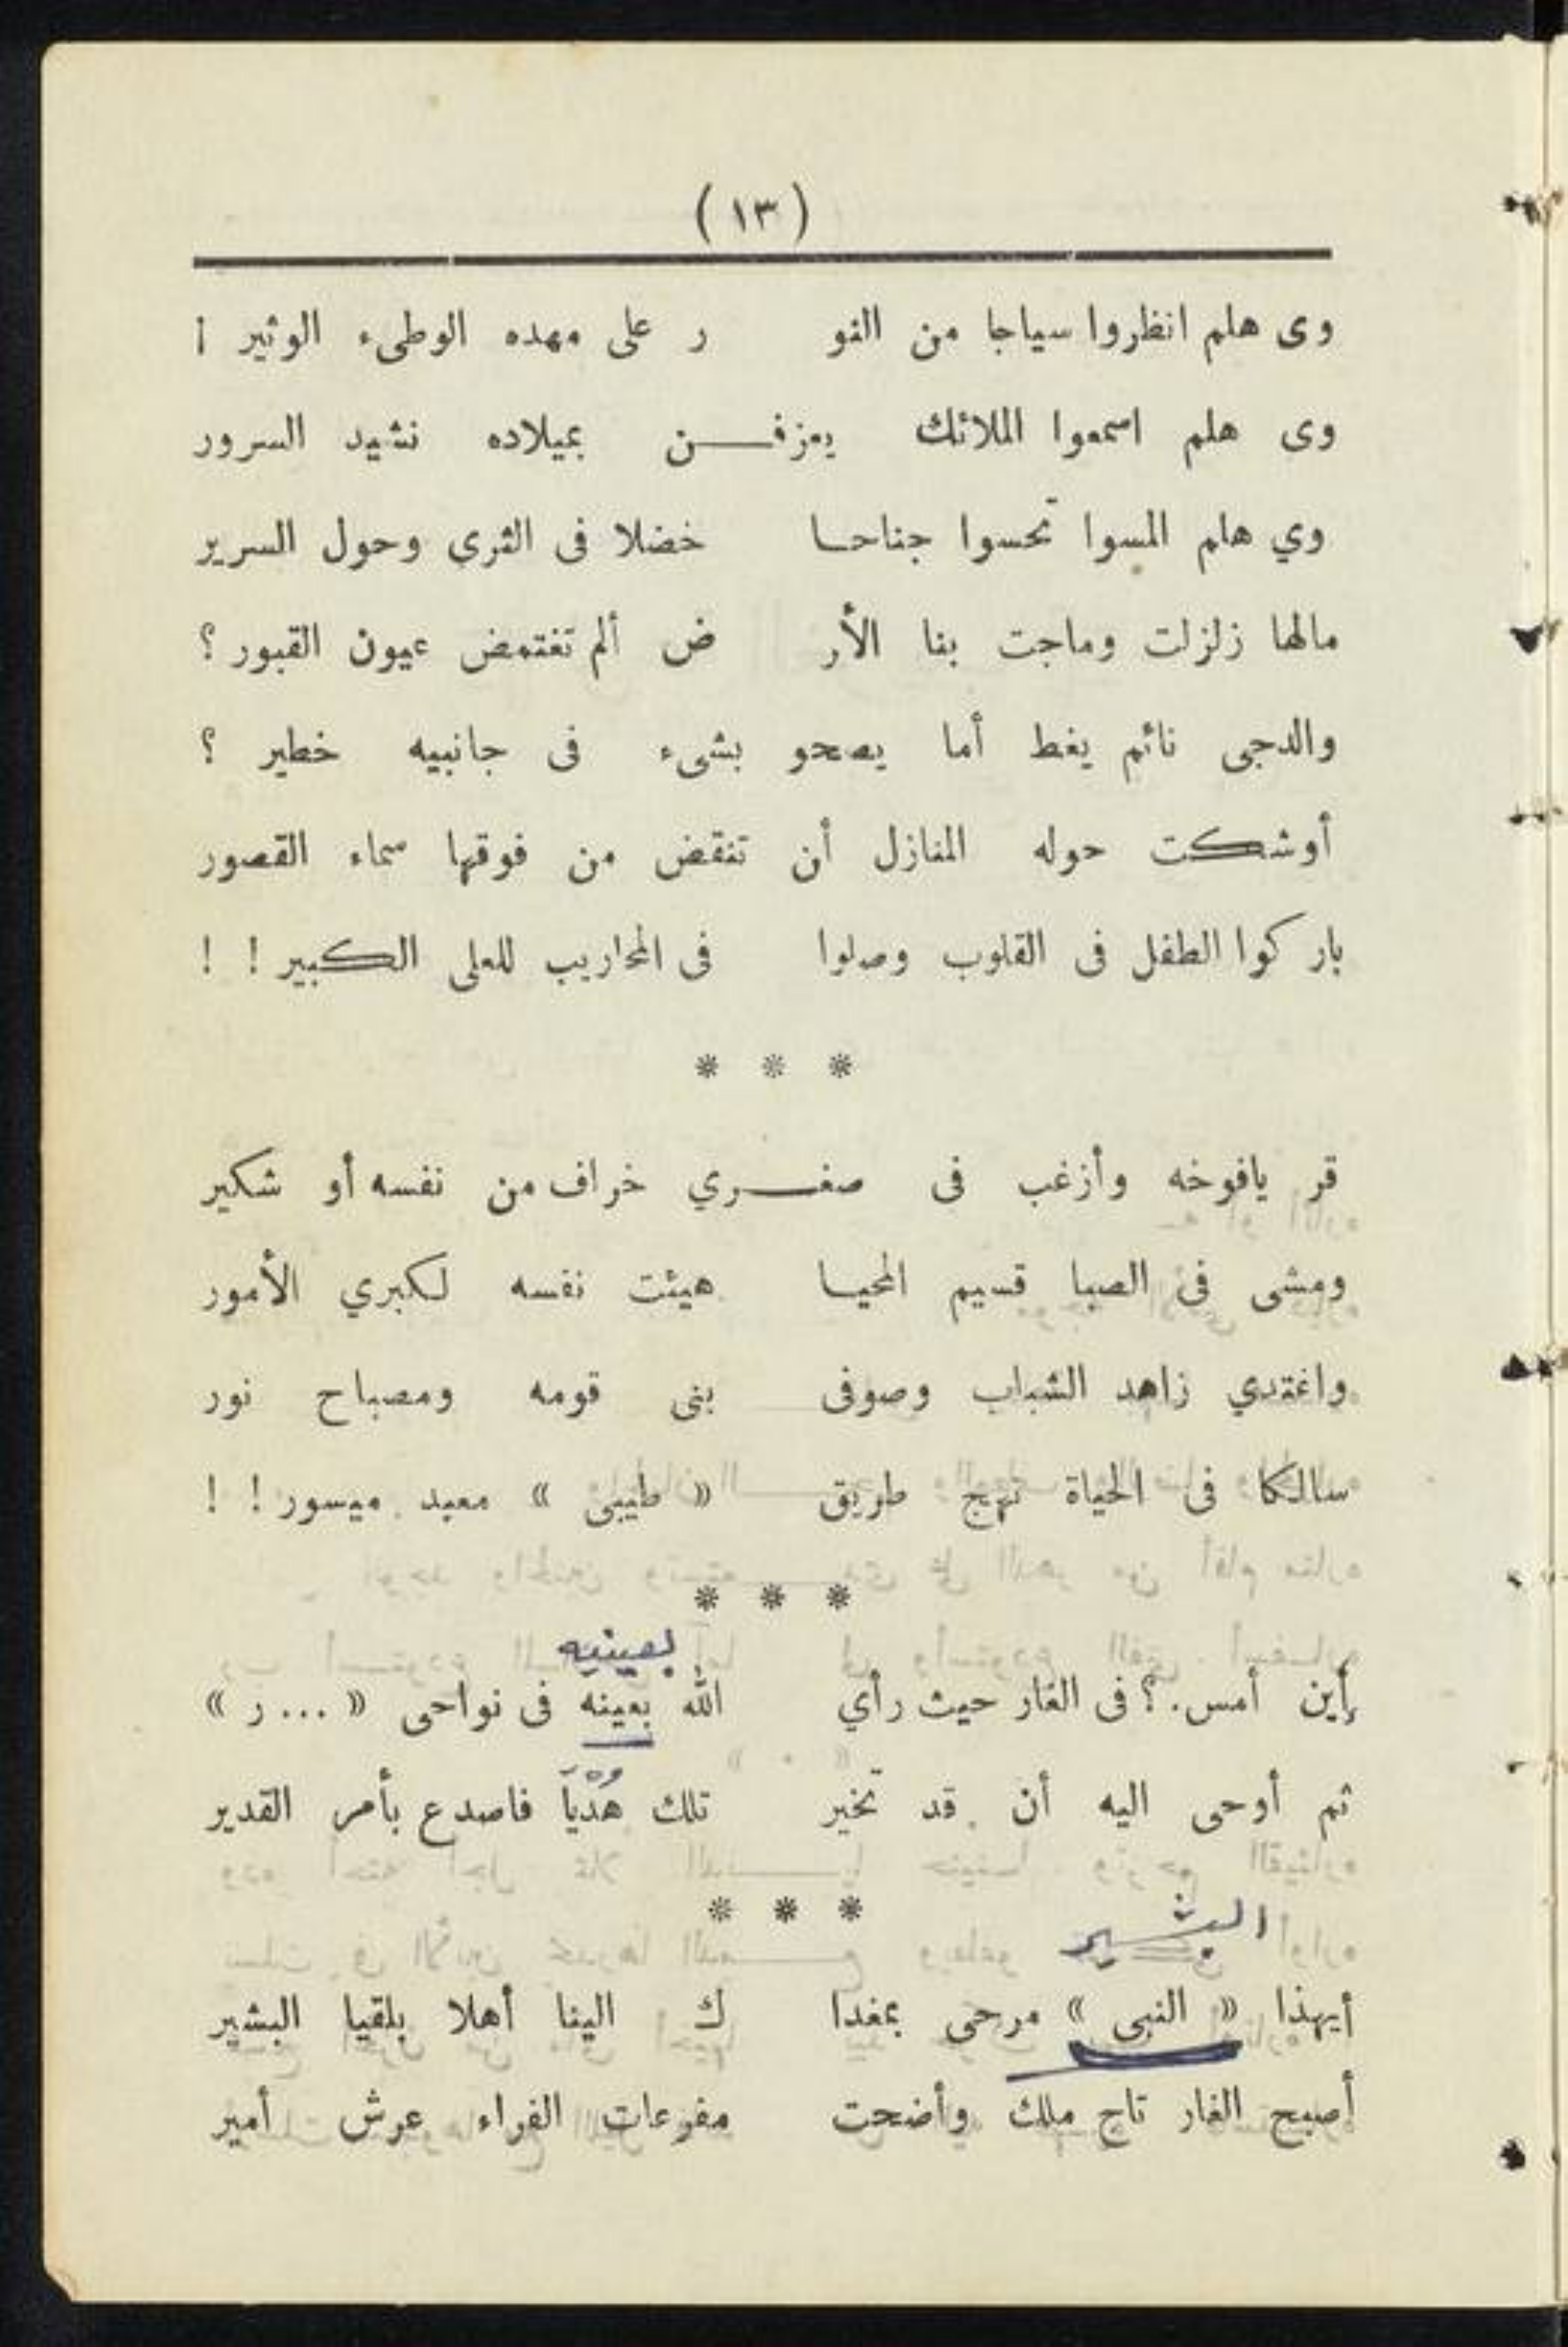 (١٣)
وى هلم انظروا سياجا من النو ر على مهده الوطىء الوثير !
وى هلم اسمعوا الملائك يعزفـــن بميلاده نشيد السرور
وي هلم المسوا تحسوا جناحـا خضلا فى الثرى وحول السرير
مالها زلزلت وماجت بنا الأر ض ألم تغتمض عيون القبور ؟
والدجى نائم يغط أما يصحو بشىء فى جانبيه خطير ؟
أوشكت حوله المنازل أن تنقض من فوقها سماء القصور
باركوا الطفل فى القلوب وصلوا فى المحاريب للعلى الكبير ! !
* * *
قر يافوخه وأزغب فى صغـــري خراف من نفسه أو شكير
ومشى فى الصبا قسيم المحيـا هيئت نفسه لكبري الأمور
واغتدي زاهد الشباب وصوفى بنى قومه ومصباح نور
سالكا فى الحياة نهج طريق « طيبى » معبد ميسور ! !
* * *
بعينيه
أين أمس . ؟ فى الغار حيث رأي الله بعينه فى نواحى « ... ر »
ثم أوحى اليه أن قد تخير تلك هُدّيَاً فاصدع بأمر القدير
* * *
البشير
أيهذا « النبى » مرحى بمغدا ك الينا أهلا بلقيا البشير
أصبح الغار تاج ملك وأضحت مفرعات الفراء عرش أمير